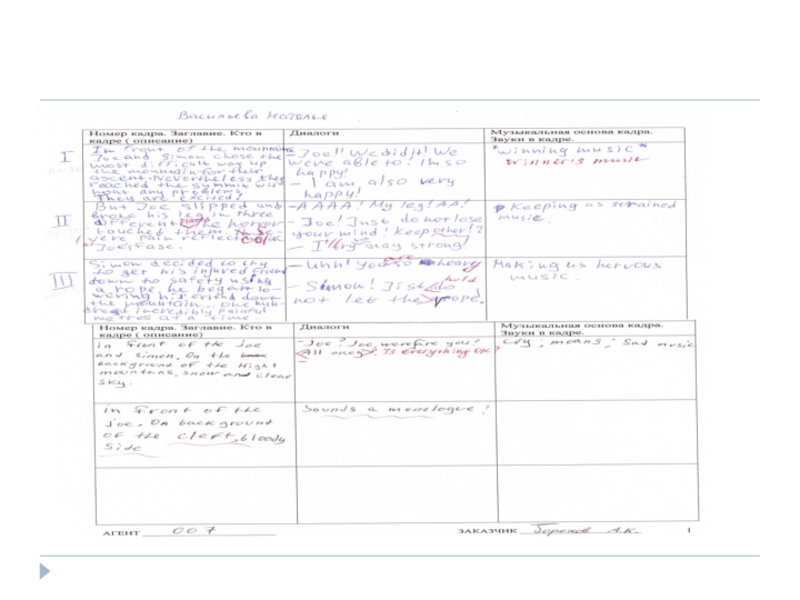 Васильева Наталья
Номер кадра. Заглавие. Кто в
кадре ( описание)
Диалоги
Музыкальная основа кадра.
Звуки в кадре.
I
In front of the mountains
Joe and Simon chose the
most difficult way up
the mountain for their
ascent. Nevertheless they
reached the summit wit
hout any problems
They are excited!
– Joe!! We did it! We
were able to! I'm so
happy!
– I am also very
happy!
"winning music"
winner's music
II
But Joe slipped and
broke his leg in three
different The horror
touched them.
very pain reflected
Joe's fase.
– AAAA! My leg! AA!
– Joe! Just do not lose
your mind! Keep other!?
– I'll try stay strong!
Keeping as strained
music.
III
Simon decided to try
to get his injured friend
down to safety using
a rope, he began lo-
wering his friend down
the mountain... one hun-
dred incredibly painful
metres at a time
– Uhh! You are so heavy
– Simon! Just do hold
not let the rope.
Making us nervous
music.
Номер кадра. Заглавие. Кто в
кадре ( описание)
Диалоги
Музыкальная основа кадра.
Звуки в кадре.
in front of the Joe
and Simon. On the
background of the Hight
mountains, snow and clear
sky.
– Joe? Joe, were are you?
All oney? Is everything OK?
–
Cry, moans; Sad music
In front of the
Joe. On background
of the cleft, bloody
side
Sounds a monologue?
АГЕНТ 007
ЗАКАЗЧИК А.К.
1